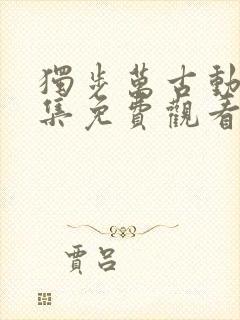 獨步萬古動
集免費觀看
賈呂